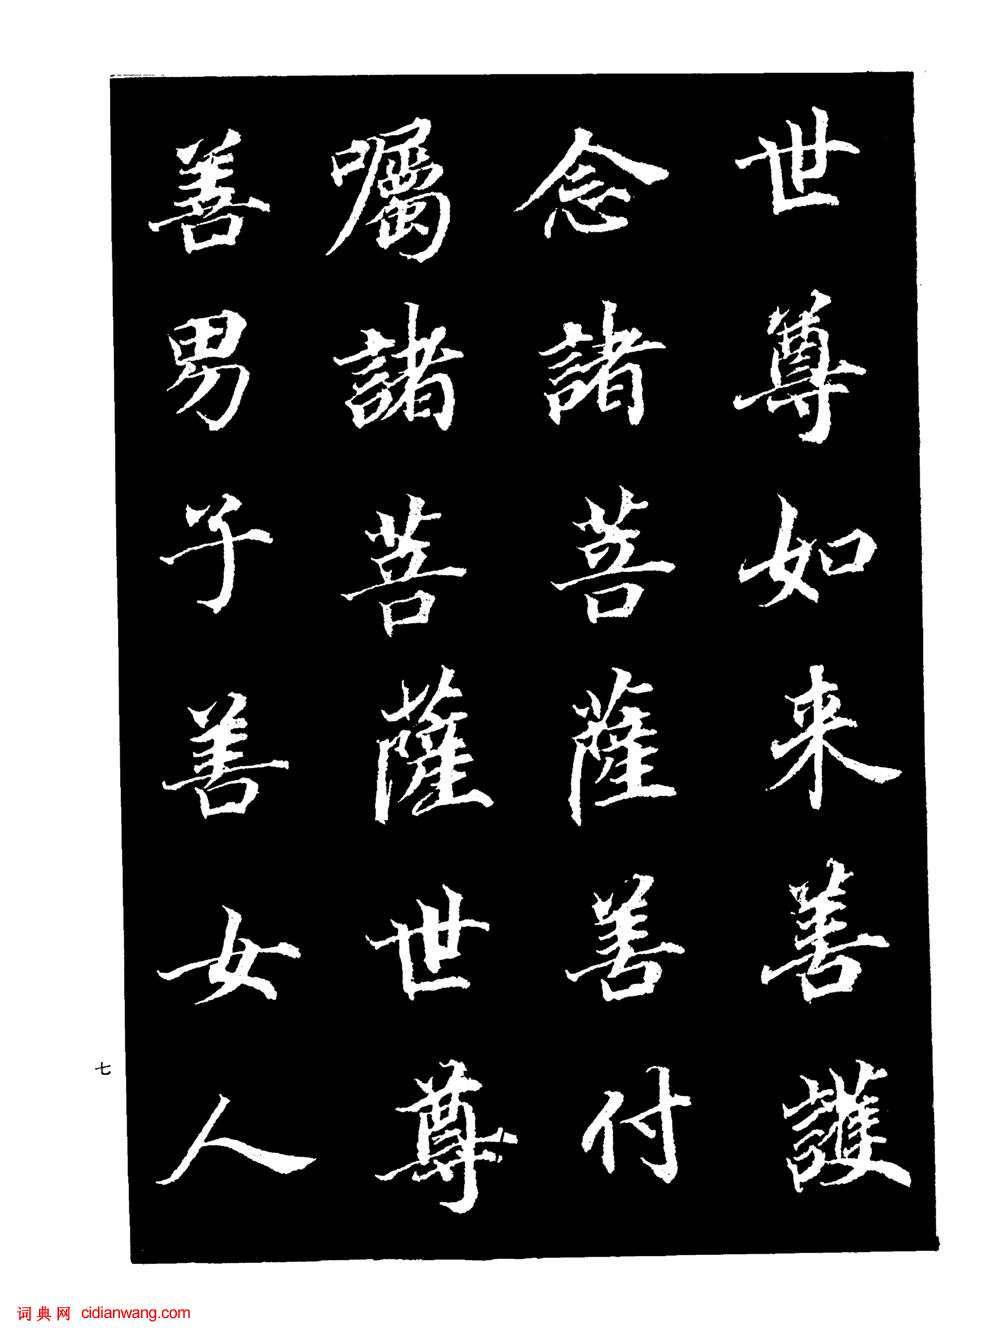 世尊如来善護
念諸菩薩善付
囑諸菩薩世尊
善男子善女人
七
词典网 cidianwang.com